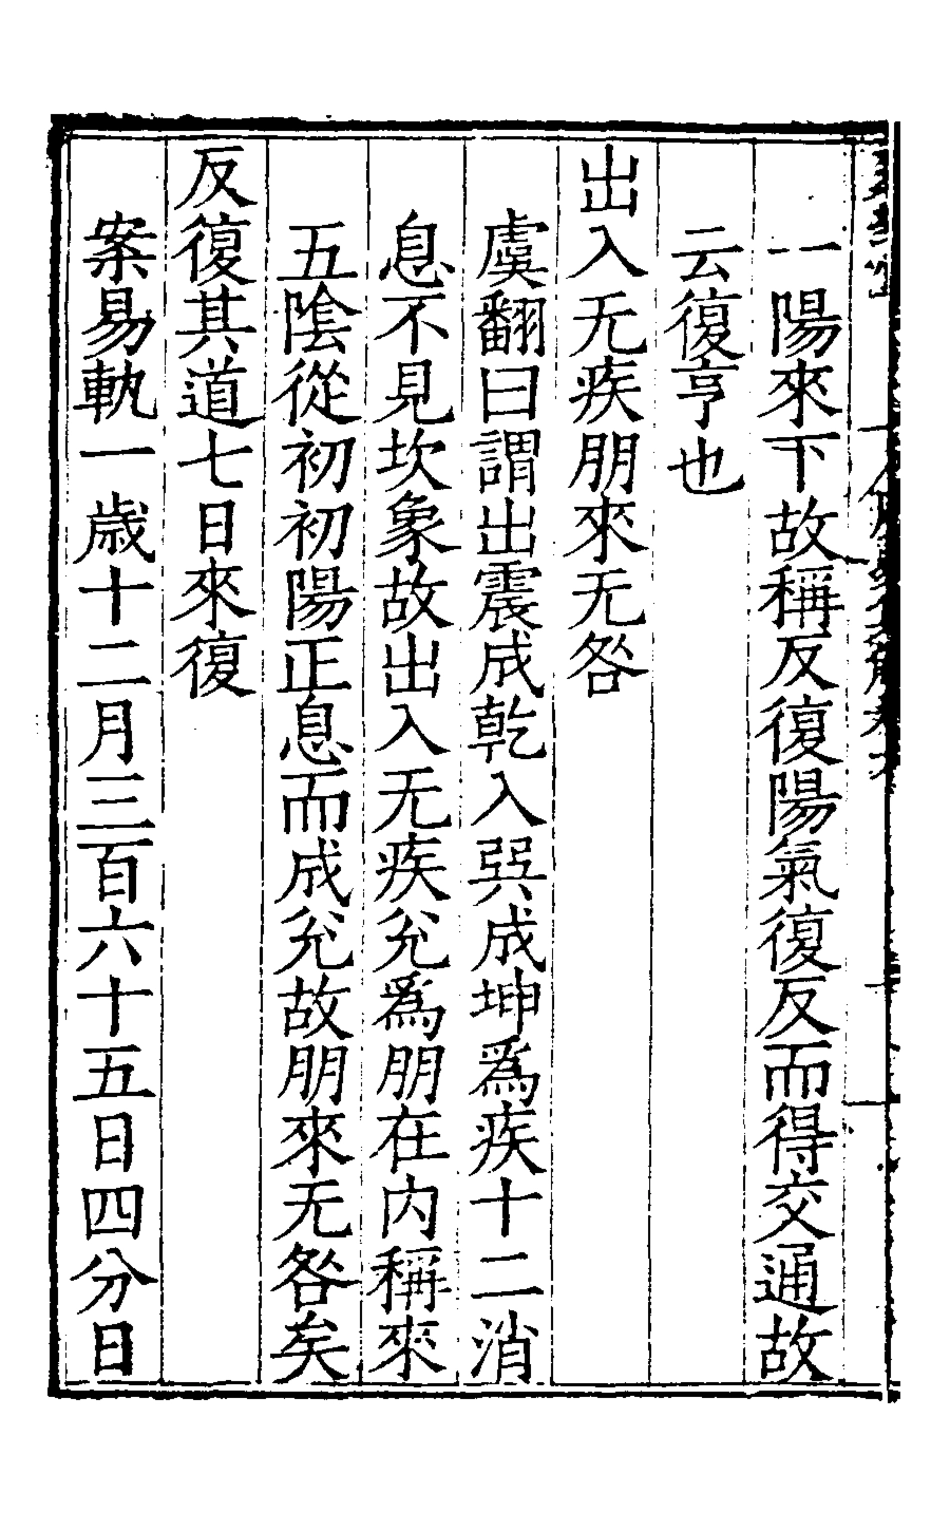 一陽來下故稱反復陽氣復反而得交通故
云復亨也
出入无疾朋來无咎
虞翻曰謂出震成乾入巽成坤爲疾十二消
息不見坎象故出入无疾兊爲朋在內稱來
五陰從初初陽正息而成兊故朋來无咎矣
反復其道七日來復
案易軌一歳十二月三百六十五日四分日